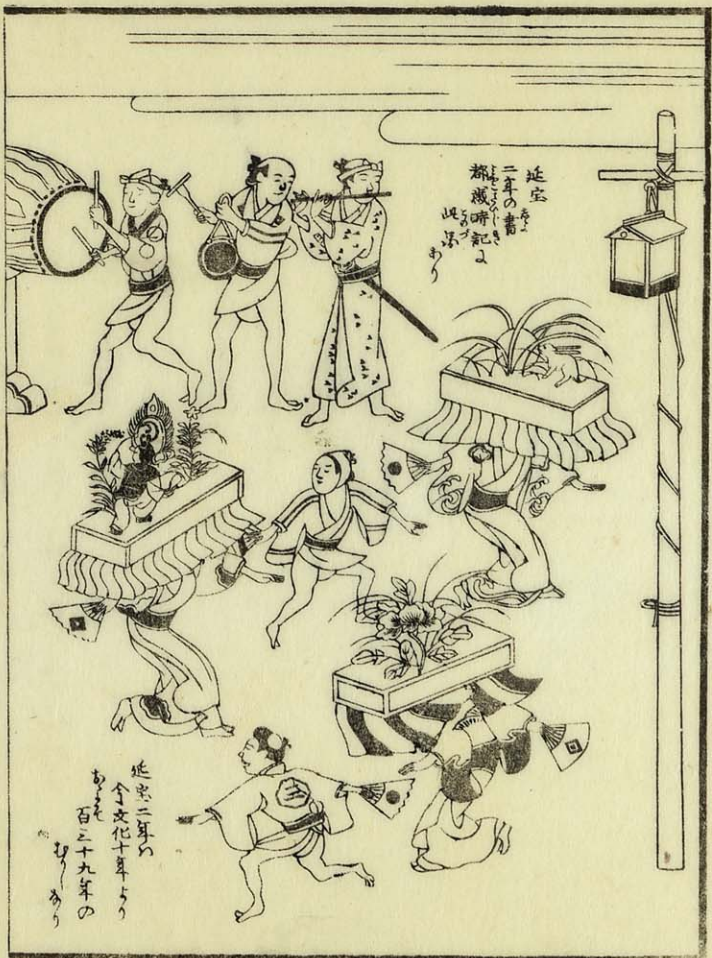 延宝
二年の書
都歳時記に
此図
あり
延宝二年ハ
今文化十年より
およそ
百三十九年の
むかしなり